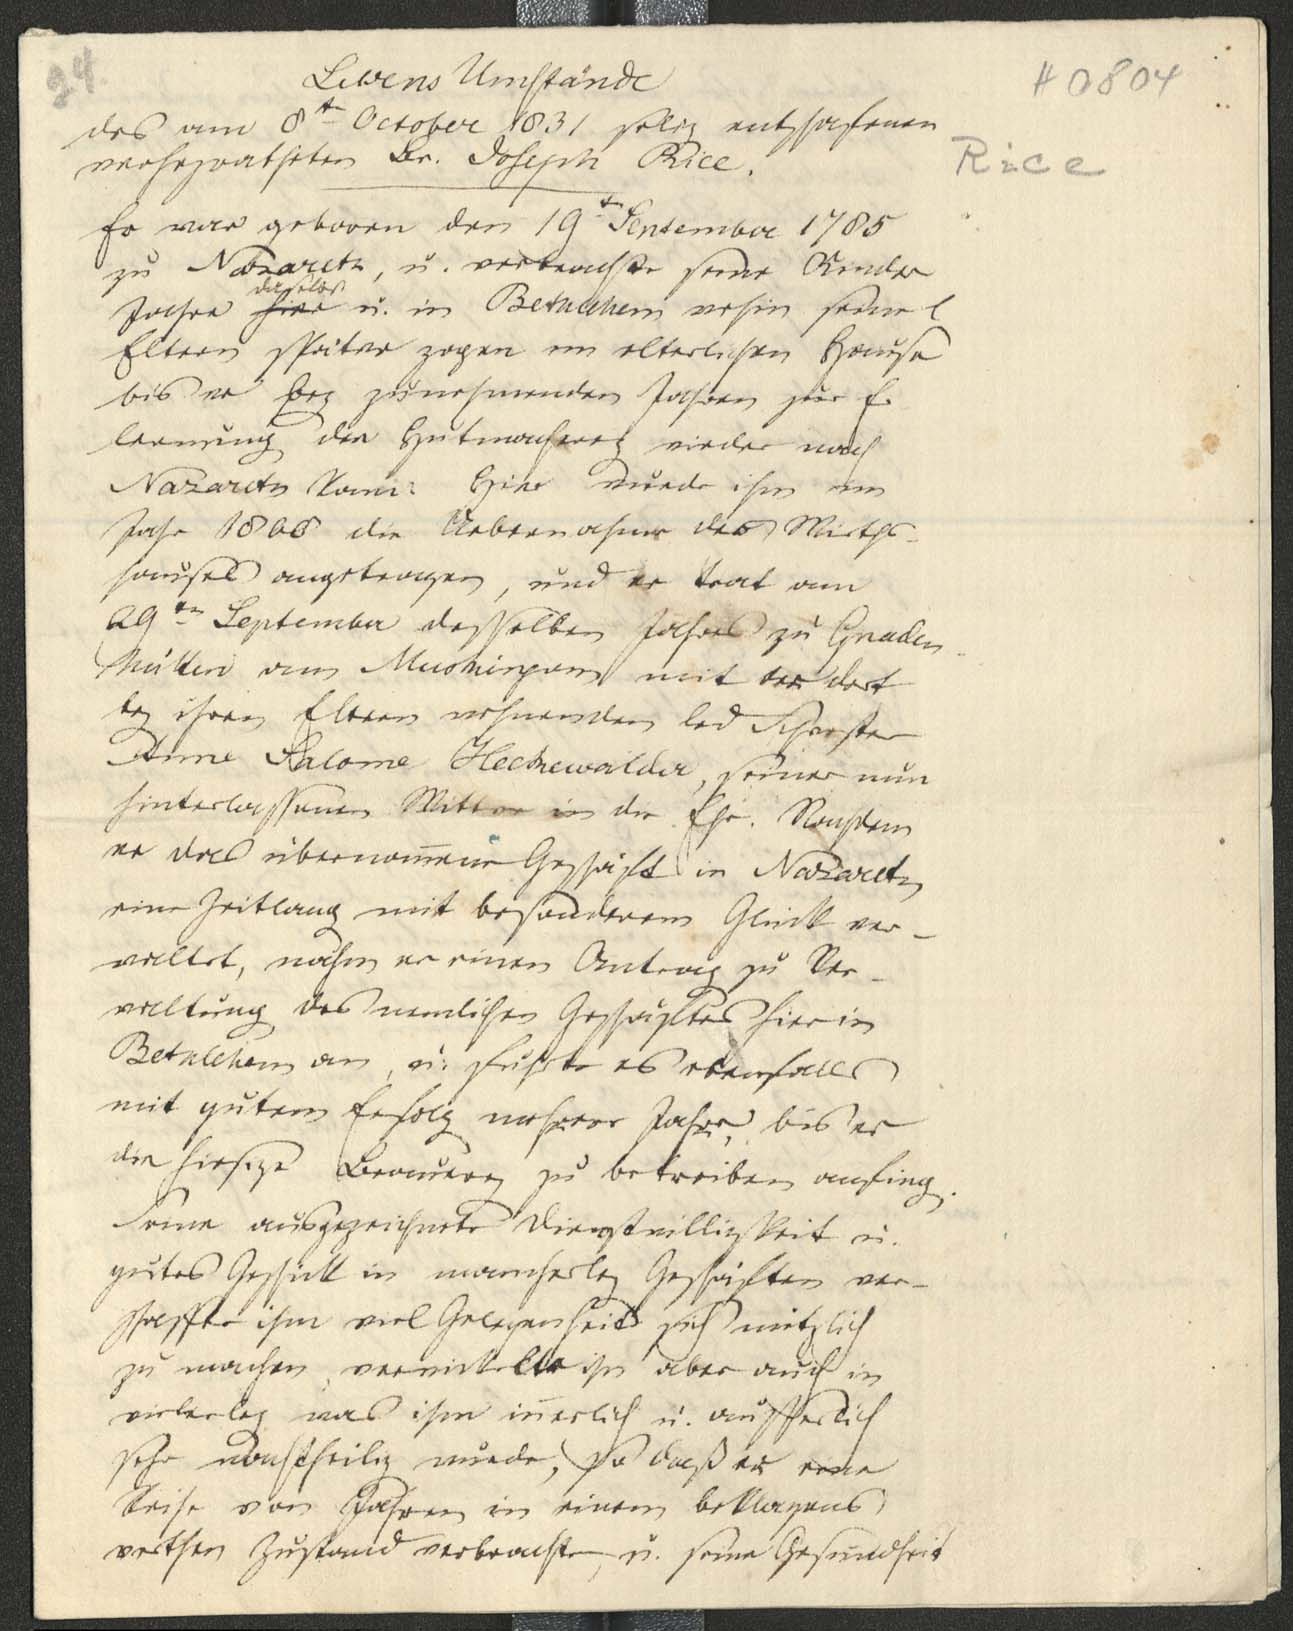 24.
# 0804
Rice
Lebens Umstände
des am 8ten October 1831 selig entschlafenen
verheyratheten Br. Joseph Rice.
Er war geboren den 19ten September 1785
zu Nazareth, u. verbrachte seine Kinder
Jahre hier daselbst u. in Bethlehem wohin seine l
Eltern später zogen im elterlichen Hause
bis er bey zunehmenden Jahren zur Er
lernung der Hutmacherey wieder nach
Nazareth kam. Hier wurde ihm im
Jahr 1808 die Uebernahme des Wirths-
hauses angetragen, und er trat am
29ten September desselben Jahres zu Gnaden-
hütten am Muskingum mit der dort
bey ihren Eltern wohnenden led Schwester
Anne Salome Heckewälder, seiner nun
hinterlassenen Witwe in die Ehe. Nachdem
er das übernom̄ene Geschäft in Nazareth
eine Zeitlang mit besonderem Glück ver-
waltet, nahm er einen Antrag zu Ver-
waltung des nemlichen Geschäftes hier in
Bethlehem an, u. führte es ebenfalls
mit gutem Erfolg mehrere Jahre, bis er
die hiesige Brauerey zu betreiben anfing.
Seine ausgezeichnete Dienstwilligkeit u.
gutes Geschick in mancherley Geschäften ver-
schaffte ihm viel Gelegenheit sich nützlich
zu machen, verwickelte ihn aber auch in
vielerley was ihm in̄erlich u. äusserlich
sehr nachtheilig wurde, so daß er eine
Reihe von Jahren in einem beklagens
werthen Zustand verbrachte, u. seine Gesundheit